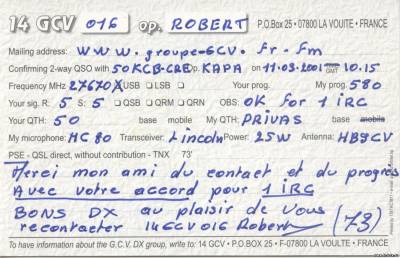 14 GCV 016 op. ROBERT P.O.Box 25 • 07800 LA VOULTE • FRANCE
Mailing address: www.groupe-GCV.fr.fm
Confirming 2-way QSO with 50KCB-CRE Op. KAPA on 11.03.2001 GMT 10.15
Frequency MHz 27670 X USB ❑ LSB ❑ Your prog. My prog. 580
Your sig. R 5 S 5 ❑ QSB ❑ QRM ❑ QRN OBS: OK for 1 IRC
Your QTH: 50 base mobile My QTH: PRIVAS base mobile
My microphone: MC 80 Transceiver: Lincoln Power: 25W Antenna: HB9CV
PSE - QSL direct, without contribution - TNX 73'
Merci mon ami du contact et du progrès
Avec votre accord pour 1 IRC
BONS DX au plaisir de vous
recontacter 14GCV016 Robert (73)
To have information about the G.C.V. DX group, write to: 14 GCV • P.O.BOX 25 • F-07800 LA VOULTE • FRANCE